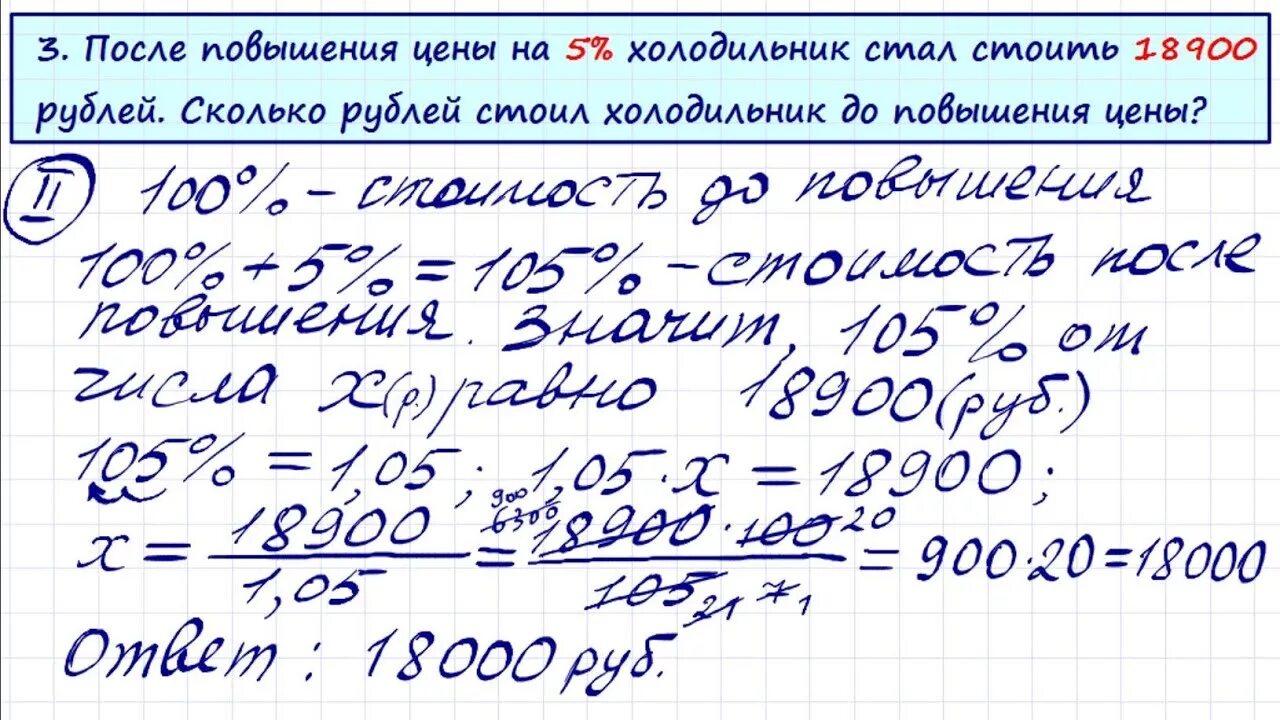 3. После повышения цены на 5% холодильник стал стоить 18900
рублей. Сколько рублей стоил холодильник до повышения цены?
II 100% – стоимость до повышения
100% + 5% = 105% – стоимость после
повышения. Значит, 105% от
числа x(р.) равно 18900(руб.)
105% = 1,05; 1,05 · x = 18900;
x = 18900/1,05 = 18900 · 100/105 = 900 · 20 = 18000
900 6300 20 21 7 1
Ответ: 18000 руб.